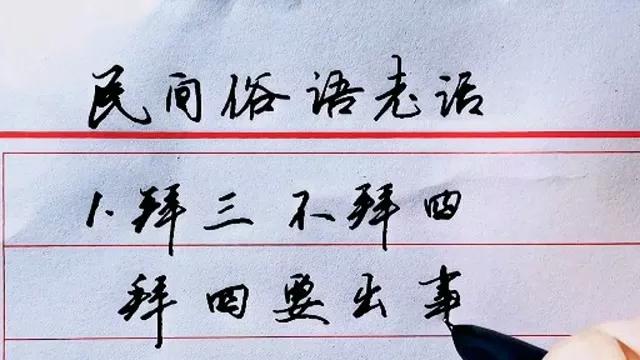 民间俗语老话
1.拜三不拜四
拜四要出事